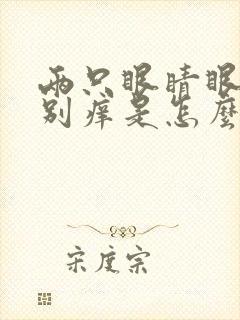 两只眼睛眼
别痒是怎麼
宋度宗